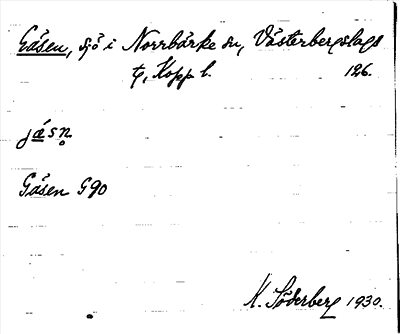 Gåsen, sjö i Norrbärke sn, Västerbergslags
t, Kopp l. 126.
jå̀sn̥
Gåsen G90
K. Söderberg 1930.